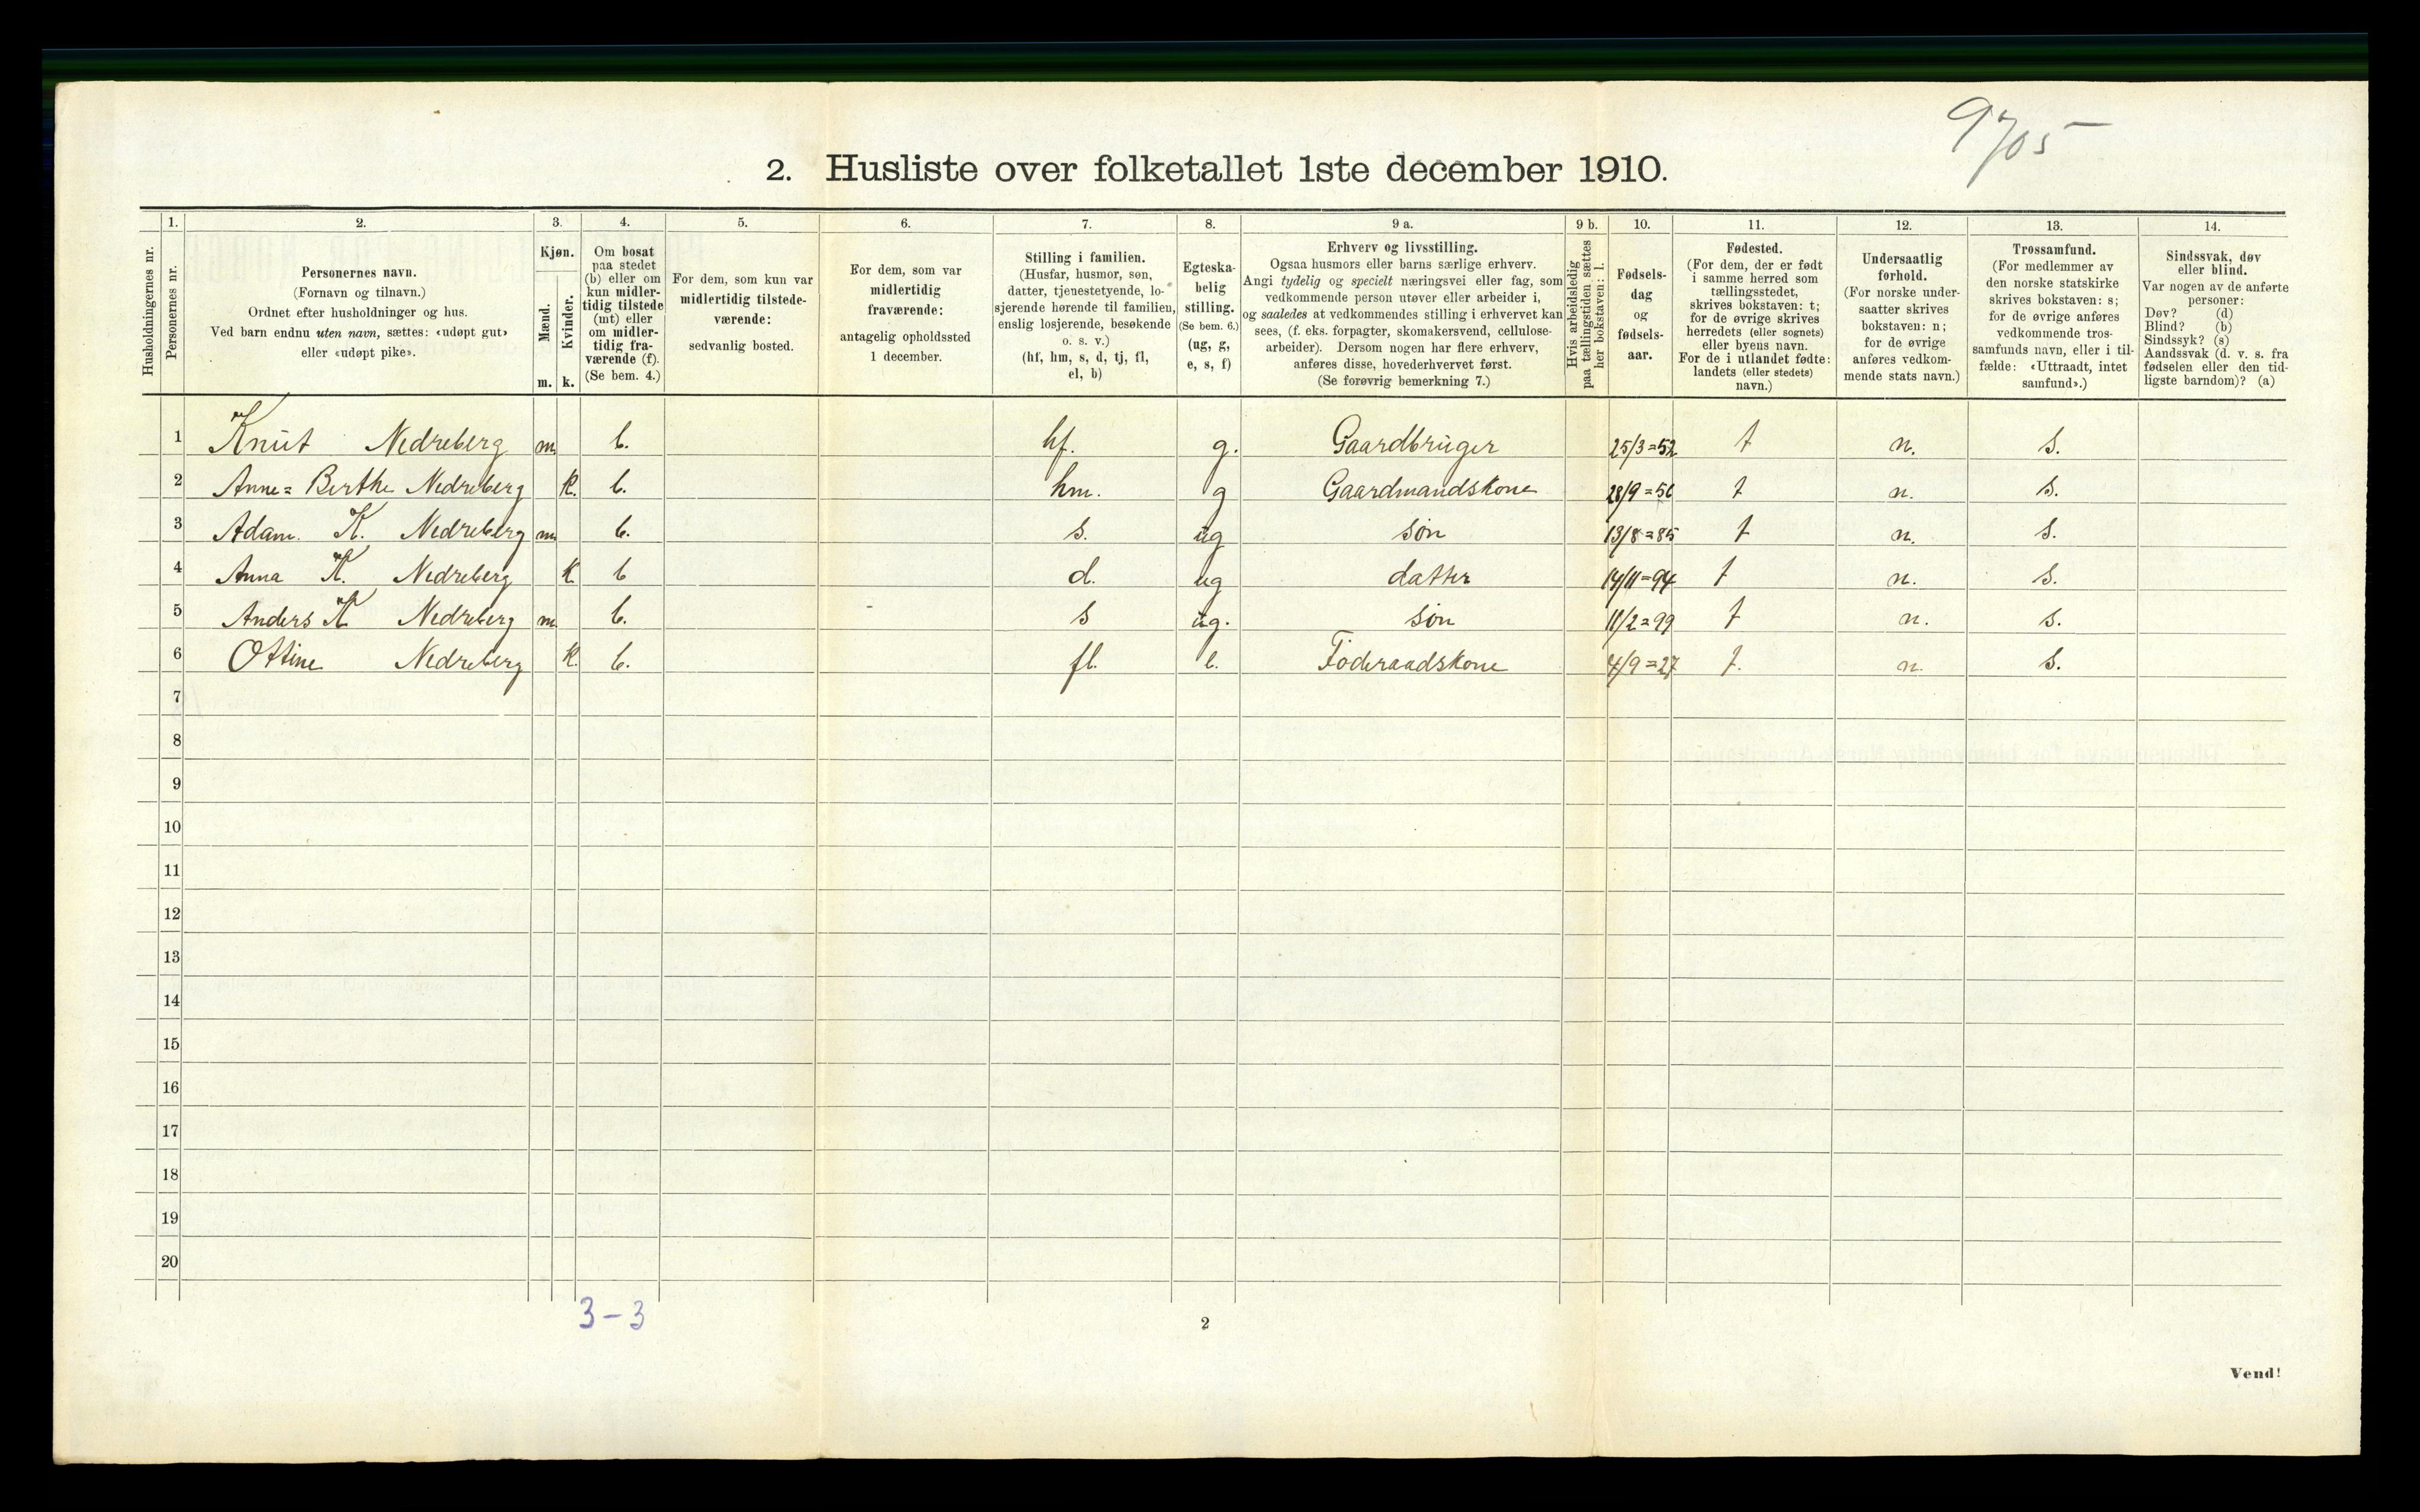 9705
2. Husliste over folketallet 1ste december 1910.
1. 2. 3. 4. 5. 6. 7. 8. 9 a. 9 b. 10. 11. 12. 13. 14.
Husholdningernes nr.
Personernes nr.
Personernes navn.
(Fornavn og tilnavn.)
Ordnet efter husholdninger og hus.
Ved barn endnu uten navn, sættes: «udøpt gut»
eller «udøpt pike».
Kjøn.
Mænd.
Kvinder.
m. k.
Om bosat
paa stedet
(b) eller om
kun midler-
tidig tilstede
(mt) eller
om midler-
tidig fra-
værende (f).
(Se bem. 4.)
For dem, som kun var
midlertidig tilstede-
værende:
sedvanlig bosted.
For dem, som var
midlertidig
fraværende:
antagelig opholdssted
1 december.
Stilling i familien.
(Husfar, husmor, søn,
datter, tjenestetyende, lo-
sjerende hørende til familien,
enslig losjerende, besøkende
o. s. v.)
(hf, hm, s, d, tj, fl,
el, b)
Egteska-
belig
stilling.
(Se bem. 6.)
(ug, g,
e, s, f)
Erhverv og livsstilling.
Ogsaa husmors eller barns særlige erhverv.
Angi tydelig og specielt næringsvei eller fag, som
vedkommende person utøver eller arbeider i,
og saaledes at vedkommendes stilling i erhvervet kan
sees, (f. eks. forpagter, skomakersvend, cellulose-
arbeider). Dersom nogen har flere erhverv,
anføres disse, hovederhvervet først.
(Se forøvrig bemerkning 7.)
Hvis arbeidsledig
paa tællingstiden sættes
her bokstaven: l.
Fødsels-
dag
og
fødsels-
aar.
Fødested.
(For dem, der er født
i samme herred som
tællingsstedet,
skrives bokstaven: t;
for de øvrige skrives
herredets (eller sognets)
eller byens navn.
For de i utlandet fødte:
landets (eller stedets)
navn.)
Undersaatlig
forhold.
(For norske under-
saatter skrives
bokstaven: n;
for de øvrige
anføres vedkom-
mende stats navn.)
Trossamfund.
(For medlemmer av
den norske statskirke
skrives bokstaven: s;
for de øvrige anføres
vedkommende tros-
samfunds navn, eller i til-
fælde: «Uttraadt, intet
samfund».)
Sindssvak, døv
eller blind.
Var nogen av de anførte
personer:
Døv? (d)
Blind? (b)
Sindssyk? (s)
Aandssvak (d. v. s. fra
fødselen eller den tid-
ligste barndom)? (a)
1 Knut Nedreberg m b. hf. g. Gaardbruger 25/3=52 t n. s.
2 Anne= Berthe Nedreberg k. b. hm. g Gaardmandskone 28/9 t n. s.
3 Adam. K. Nedreberg m b. s. ug søn 13/8=85 t n. s.
4 Anna K. Nedreberg k b d. ug datter 14/11=94 t n. s.
5 Anders K Nedreberg m b. s ug. søn 11/2=99 t n. s.
6 Ottine Nedreberg k. b. fl. e. Føderaadskone 4/9=27 t. n. s.
7
8
9
10
11
12
13
14
15
16
17
18
19
20
3-3
2
Vend!